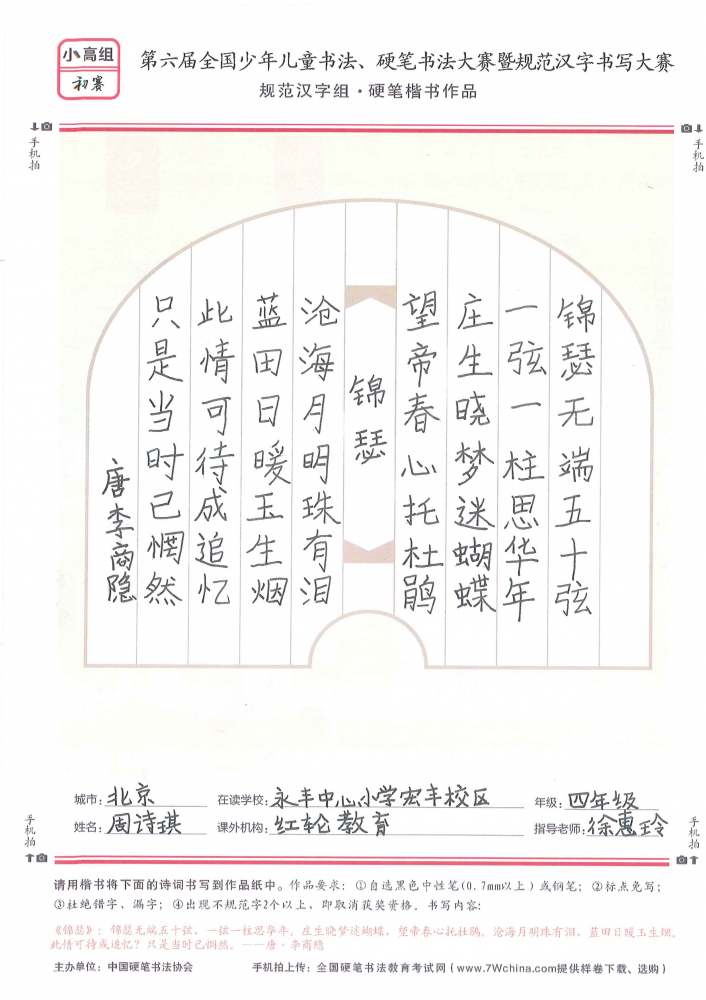 小高组
初赛
第六届全国少年儿童书法、硬笔书法大赛暨规范汉字书写大赛
规范汉字组·硬笔楷书作品
手机拍
手机拍
锦瑟无端五十弦
一弦一柱思华年
庄生晓梦迷蝴蝶
望帝春心托杜鹃
锦瑟
沧海月明珠有泪
蓝田日暖玉生烟
此情可待成追忆
只是当时已惘然
唐李商隐
城市:北京 在读学校:永丰中心小学宏丰校区 年级:四年级
姓名:周诗琪 课外机构:红轮教育 指导老师:徐惠玲
手机拍
手机拍
请用楷书将下面的诗词书写到作品纸中。作品要求:①自选黑色中性笔(0.7mm以上)或钢笔;②标点免写;
③杜绝错字、漏字;④出现不规范字2个以上,即取消获奖资格。书写内容:
《锦瑟》:锦瑟无端五十弦,一弦一柱思华年。庄生晓梦迷蝴蝶,望帝春心托杜鹃。沧海月明珠有泪,蓝田日暖玉生烟。
此情可待成追忆?只是当时已惘然。——唐·李商隐
主办单位:中国硬笔书法协会 手机拍上传:全国硬笔书法教育考试网(www.7Wchina.com提供样卷下载、选购)